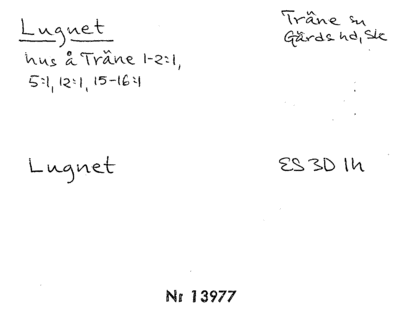 Lugnet
Träne sn
Gärds hd, Sk
hus å Träne 1-2:1,
5:1, 12:1, 15-16:1
Lugnet
ES 3D 1h
Nr 13977